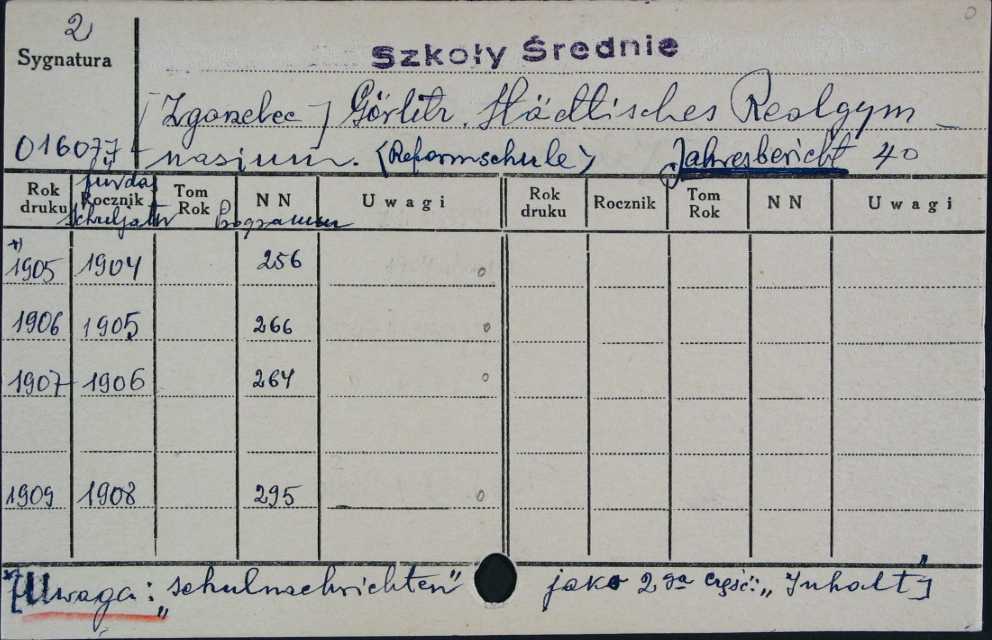 2
Sygnatura
Szkoły Średnie
[Zgorzelec] Görlitz. Städtisches Realgym-
016077
nasium. (Reformschule) Jahresbericht 40
Rok druku für das Rocznik Schuljahr Tom Rok NN Programm Uwagi Rok druku Rocznik Tom Rok NN Uwagi
*) 1905 1904 256 0
1906 1905 266 0
1907 1906 264 0
1909 1908 295 0
*[Uwaga: „Schulnachrichten" jako 2ga część: „Inhalt"]